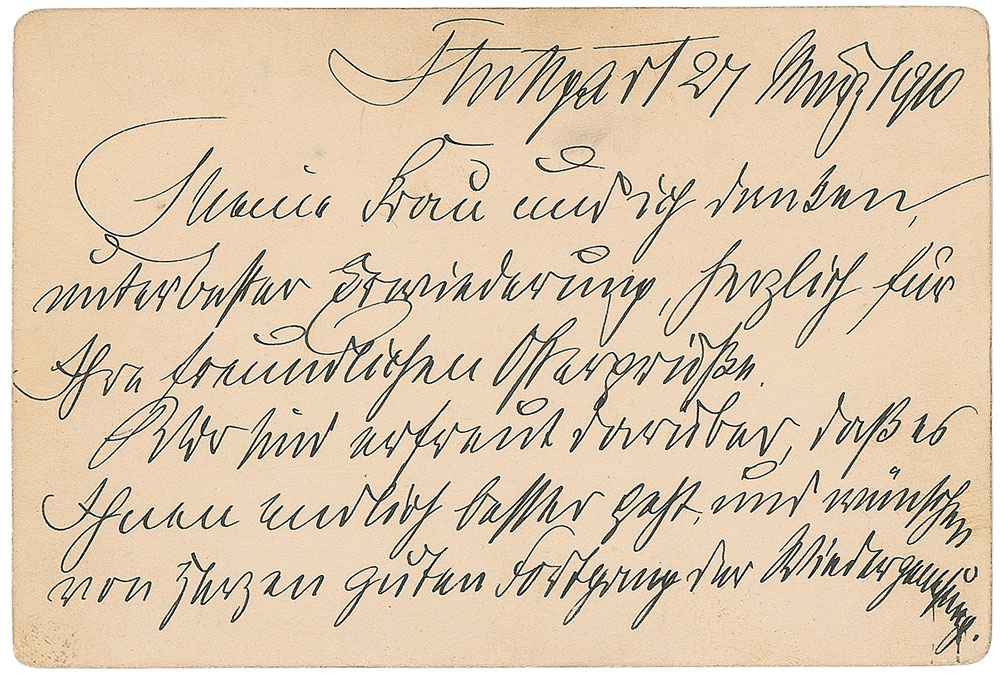 Stuttgart 27 März 1910
Meine Frau und ich danken,
unter bester Erwiederung, herzlich für
Ihre freundlichen Ostergrüße.
Wir sind erfreut darüber, daß es
Ihnen endlich besser geht, und wünschen
von Herzen guten Fortgang der Wiedergenesung.